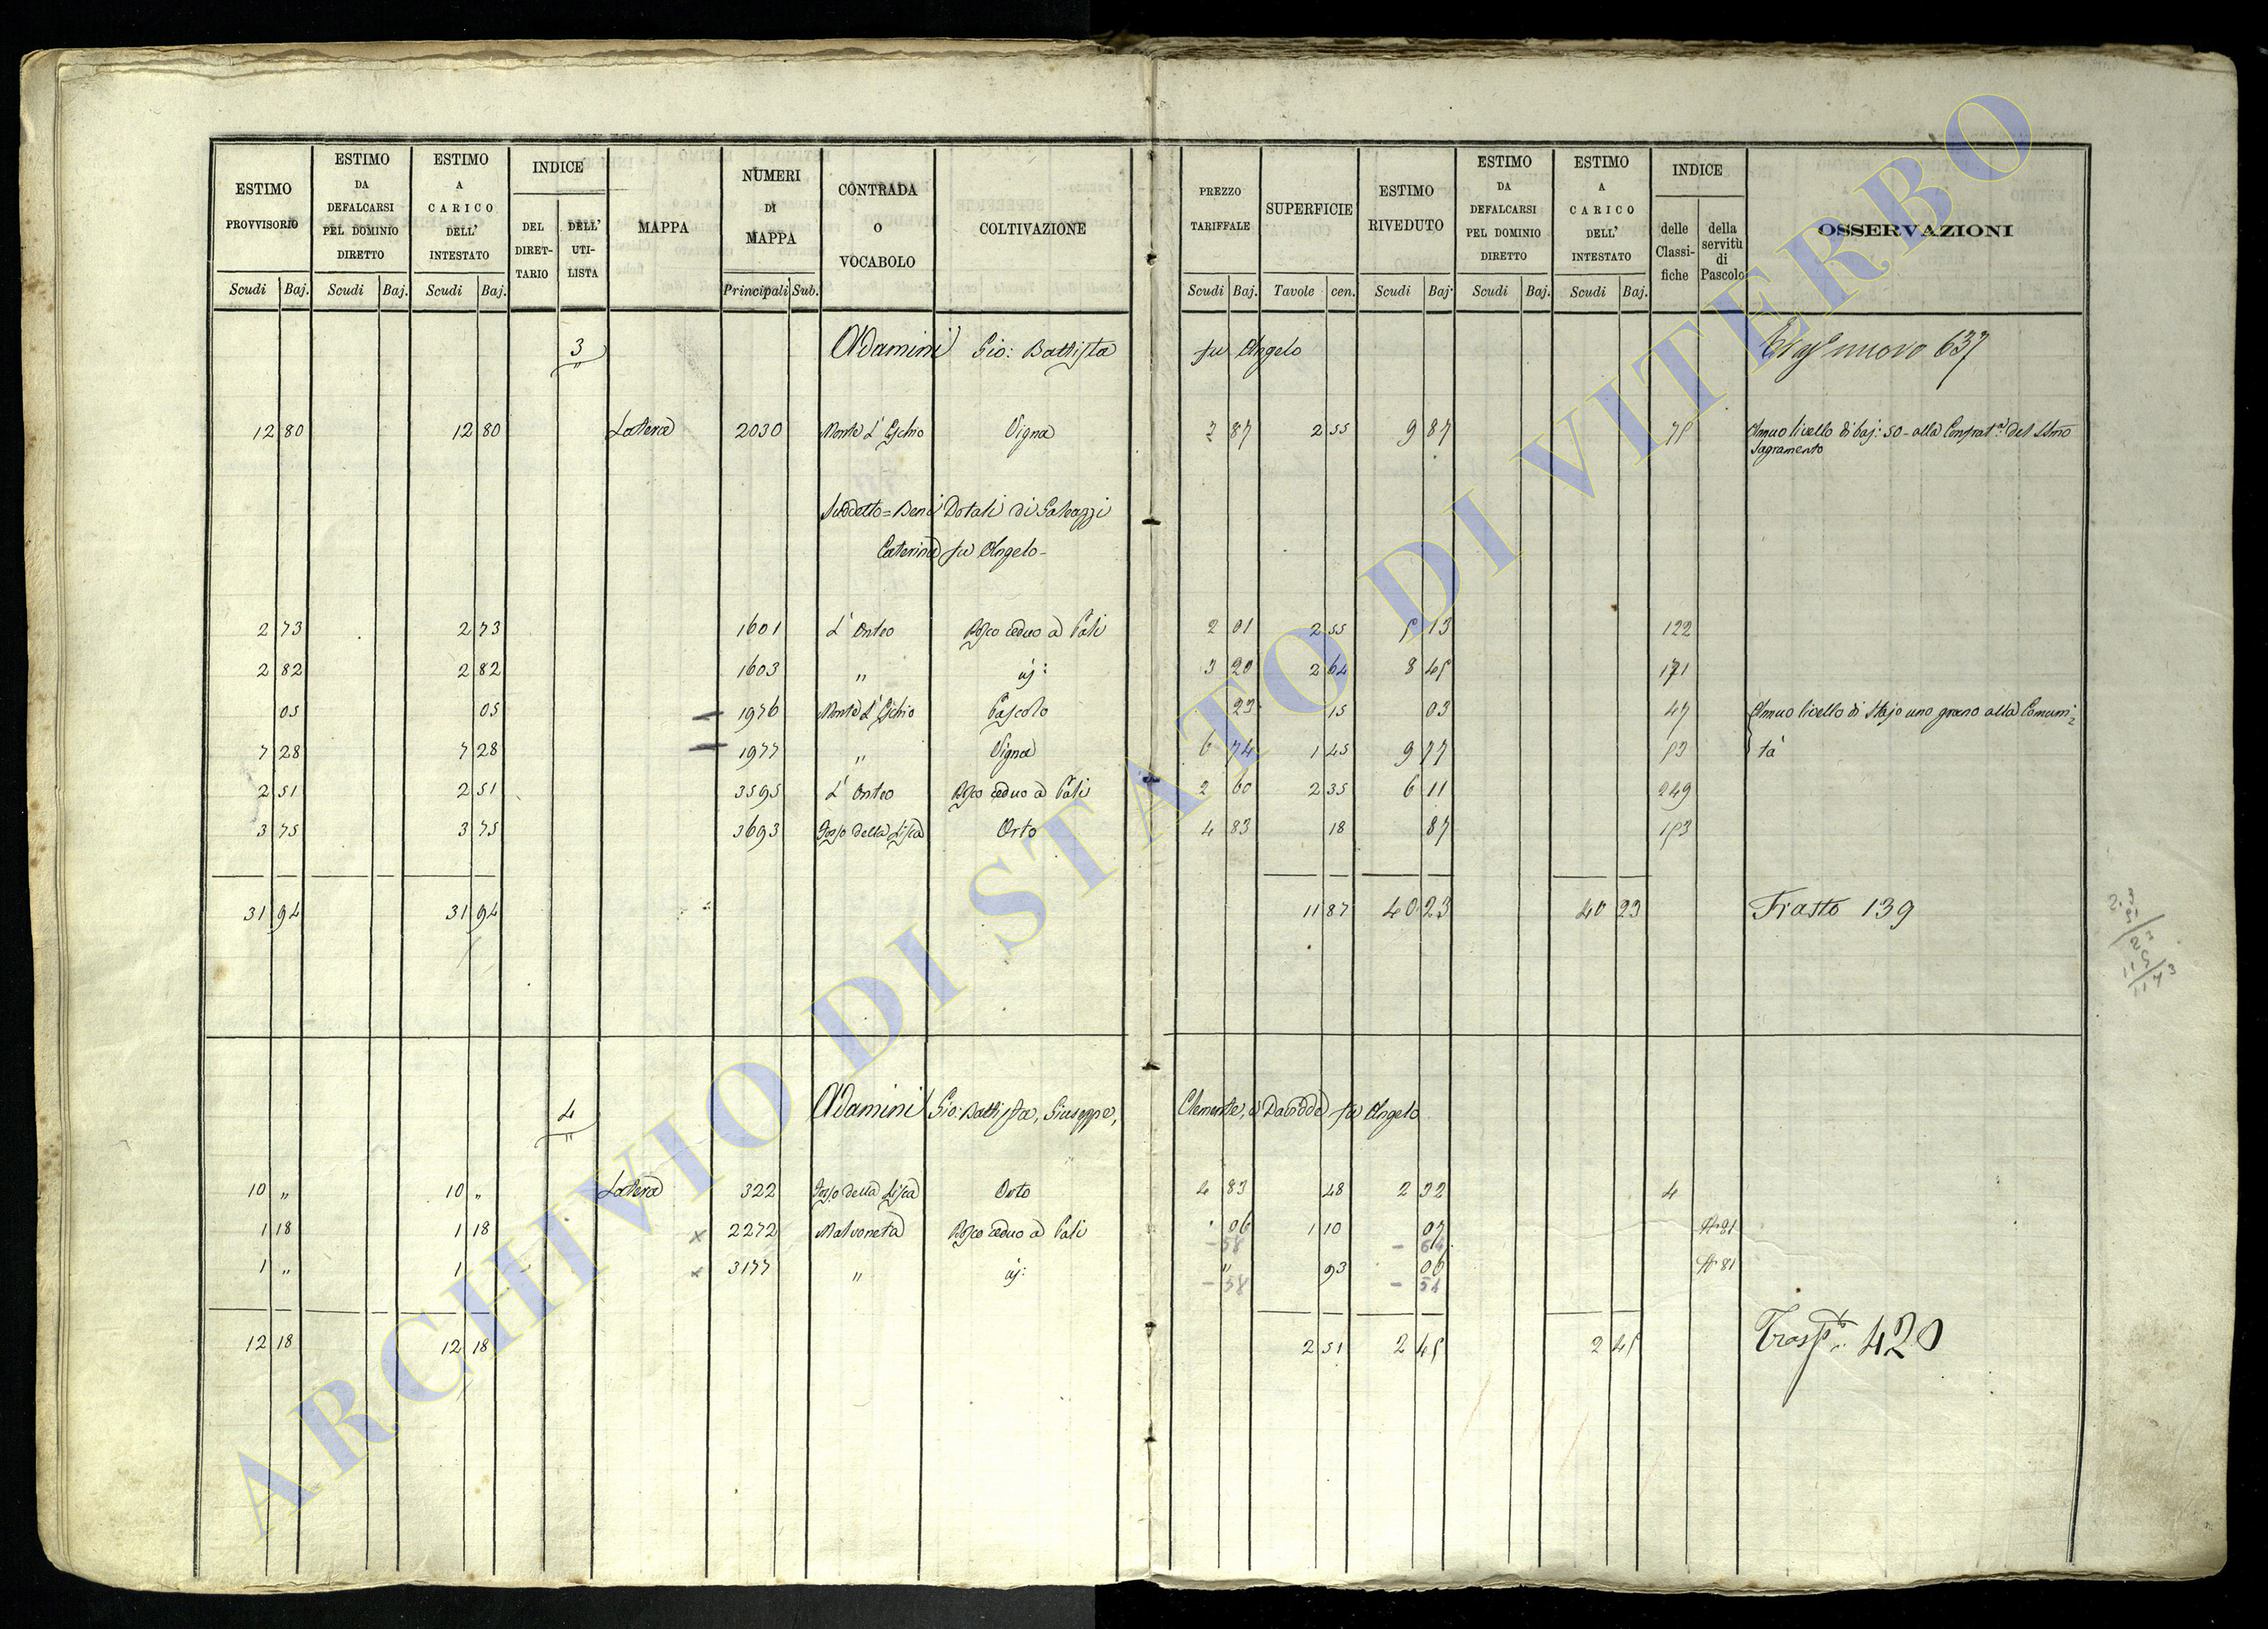 ESTIMO PROVVISORIO | ESTIMO DA DEFALCARSI PEL DOMINIO DIRETTO | ESTIMO A CARICO DELL' INTESTATO | INDICE DEL DIRETTARIO | DELL' UTILISTA | MAPPA | NUMERI DI MAPPA | CONTRADA O VOCABOLO | COLTIVAZIONE | PREZZO TARIFFALE | SUPERFICIE | ESTIMO RIVEDUTO | ESTIMO DA DEFALCARSI PEL DOMINIO DIRETTO | ESTIMO A CARICO DELL' INTESTATO | INDICE delle Classifiche | della servitù di Pascolo | OSSERVAZIONI
Scudi | Baj. | Scudi | Baj. | Scudi | Baj. | Principali | Sub. | Scudi | Baj. | Tavole | cen. | Scudi | Baj. | Scudi | Baj. | Scudi | Baj.
3 Adamini Gio: Battista fu Angelo nuovo 637
12 80 12 80 Latera 2030 Monte L'Eschio Vigna 3 87 2 55 9 87 75 Annuo livello di baj: 50 - alla Confrat.a del SSmo
Sagramento
Suddetto = Beni Dotali di Galeazzi
Caterina fu Angelo -
2 73 2 73 1601 L'Onteo Bosco ceduo a Pali 2 01 2 55 5 13 122
2 82 2 82 1603 " id: 3 20 2 64 8 45 171
05 05 1976 Monte L'Eschio Pascolo 23 15 03 47 Annuo livello di Stajo uno grano alla Comuni=
7 28 7 28 1977 " Vigna 6 74 1 45 9 77 53 tà
2 51 2 51 3595 L'Onteo Bosco ceduo a Pali 2 60 2 35 6 11 249
3 75 3 75 3693 Fosso della Lisca Orto 4 83 18 87 153
31 94 31 94 11 87 40 23 40 23 Trasto 139
4 Adamini Gio: Battista, Giuseppe, Clemente, e Davidde fu Angelo
10 " 10 " Latera 322 Fosso della Lisca Orto 4 83 48 2 32 4
1 18 1 18 x 2272 Malvoneta Bosco ceduo a Pali 06 1 10 07
- 58 - 64
1 " 1 x 3177 " id: " 93 06
- 58 - 54
12 18 12 18 2 51 2 45 2 45 Trasp.to 420
ARCHIVIO DI STATO DI VITERBO